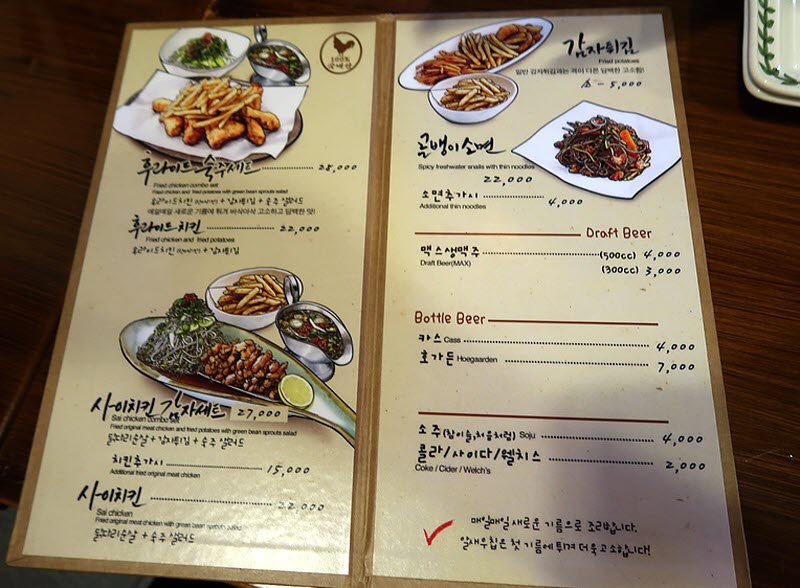 100%
국내산
후라이드 숙주세트 28,000
Fried chicken combo set
Fried chicken and fried potatoes with green bean sprouts salad
후라이드치킨 + 감자튀김 + 숙주 샐러드
매일매일 새로운 기름에 튀겨 바삭바삭 고소하고 담백한 맛!
후라이드 치킨 22,000
Fried chicken and fried potatoes
후라이드치킨 + 감자튀김
사이치킨 감자세트 27,000
Sai chicken combo set
Fried original meat chicken and fried potatoes with green bean sprouts salad
닭다리순살 + 감자튀김 + 숙주 샐러드
치킨추가시 15,000
Additional fried original meat chicken
사이치킨 22,000
Sai chicken
Fried original meat chicken with green bean sprouts salad
닭다리순살 + 숙주 샐러드
감자튀김
Fried potatoes
일반 감자튀김과는 격이 다른 담백한 고소함!
5,000
골뱅이소면
Spicy freshwater snails with thin noodles
22,000
소면추가시 4,000
Additional thin noodles
Draft Beer
맥스생맥주 (500cc) 4,000
Draft Beer(MAX) (300cc) 3,000
Bottle Beer
카스 Cass 4,000
호가든 Hoegaarden 7,000
소주(참이슬,처음처럼) Soju 4,000
콜라/사이다/웰치스 2,000
Coke / Cider / Welch's
매일매일 새로운 기름으로 조리합니다.
일찍 오시면 첫 기름에 튀겨 더욱 고소합니다!